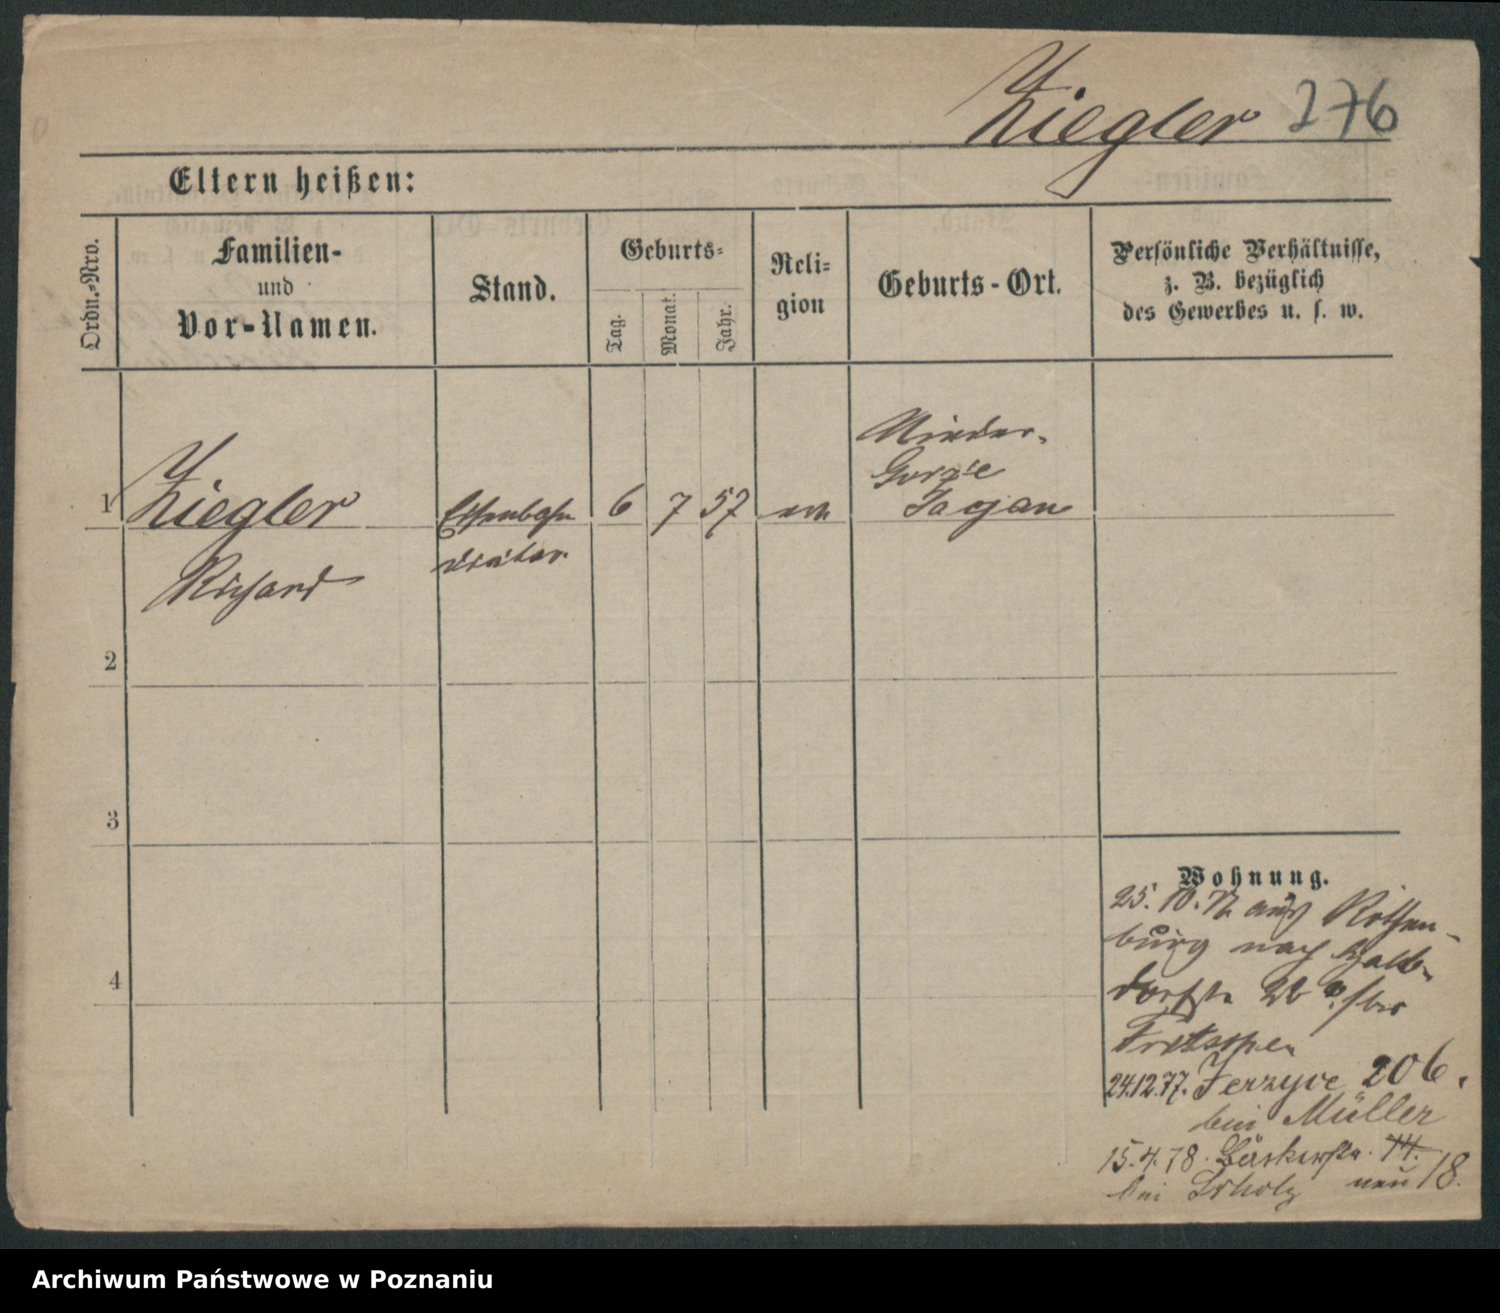 Ziegler 276
Eltern heißen:
Ordn.-Nro.
Familien-
und
Vor-Namen.
Stand.
Geburts-
Tag.
Monat.
Jahr.
Reli-
gion
Geburts-Ort.
Persönliche Verhältnisse,
z. B. bezüglich
des Gewerbes u. s. w.
Nieder-
Gorpe
1 Ziegler Eisenbahn 6 7 57 Sagan
Richard diätar.
2
3
4
Wohnung.
25. 10. 77 aus Rothen-
burg nach Halb-
dorfstr 26 bei
24.12.77. Jerzyce 206.
bei Müller
15.4.78. Bäckerstr. 14.
bei Scholz neu 18.
Archiwum Państwowe w Poznaniu